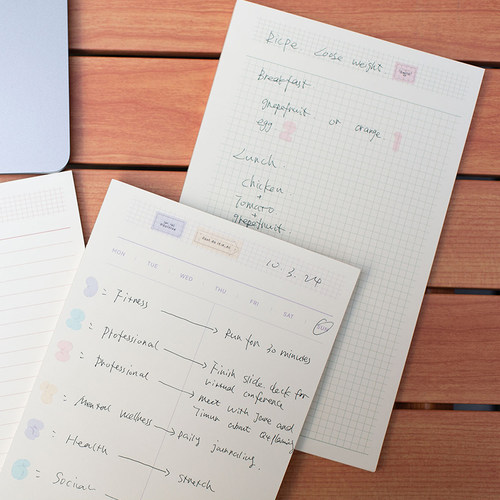 Ricpe Loose weight
Breakfast
grapefruit or orange
egg
Lunch
chicken
+
Tomato
+
grapefruit
10.3.24
MON TUE WED THU FRI SAT SUN
: Fitness → Run for 30 minutes
: Professional → Finish slide deck for
virtual conference
: Professional → meet with Jane and
Timur about Q4 planning
: Mental Wellness → daily journaling.
: Health → stretch
: Social